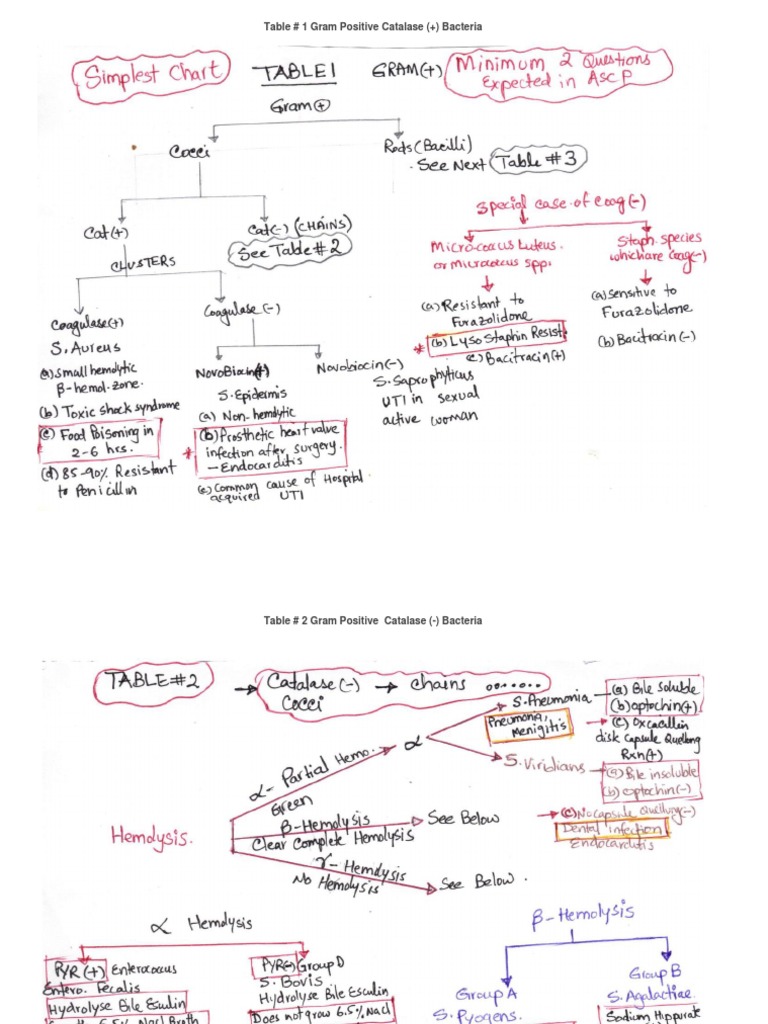 Table # 1 Gram Positive Catalase (+) Bacteria
Simplest Chart
TABLE 1
GRAM(+)
Minimum 2 Questions
Expected in ASCP
Gram(+)
Cocci
Rods (Bacilli)
See Next Table #3
Cat(+)
CLUSTERS
Cat(-) (CHAINS)
See Table # 2
Coagulase(+)
S. Aureus
(a) Small hemolytic
β-hemol. zone.
(b) Toxic shock syndrome
(c) Food Poisoning in
2-6 hrs.
(d) 85-90% Resistant
to Penicillin
Coagulase (-)
NovoBiocin(+)
S. Epidermis
(a) Non-hemolytic
(b) Prosthetic heart valve
infection after surgery.
- Endocarditis
(c) Common cause of Hospital
acquired UTI
Novobiocin(-)
S. Saprophyticus
UTI in sexual
active woman
Special case of coag(-)
Micrococcus Luteus.
or micrococcus spp.
(a) Resistant to
Furazolidone
* (b) Lyso Staphin Resist.
c) Bacitracin(+)
Staph. species
which are coag(-)
(a) Sensitive to
Furazolidone
(b) Bacitracin (-)
Table # 2 Gram Positive Catalase (-) Bacteria
TABLE #2
Catalase (-) → chains
Cocci
Hemolysis.
α- Partial Hemo.
Green
α
S. Pneumonia
Pneumonia,
Menigitis
(a) Bile Soluble
(b) optochin(+)
(c) Oxcacillin
disk Capsule Quellong
Rxn(+)
S. Viridians
(a) Bile insoluble
(b) optochin(-)
(c) No capsule Quellung(-)
Dental infection
Endocarditis
β-Hemolysis
Clear Complete Hemolysis
See Below
γ- Hemolysis
No Hemolysis
See Below.
α Hemolysis
PYR (+) Enterococcus
Entero. Fecalis
Hydrolyse Bile Esulin
6.5% Nacl Broth
PYR(-) Group D
S. Bovis
Hydrolyse Bile Esculin
Does not grow 6.5% Nacl
β-Hemolysis
Group A
S. Pyogens.
Group B
S. Agalactiae
Sodium Hippurate